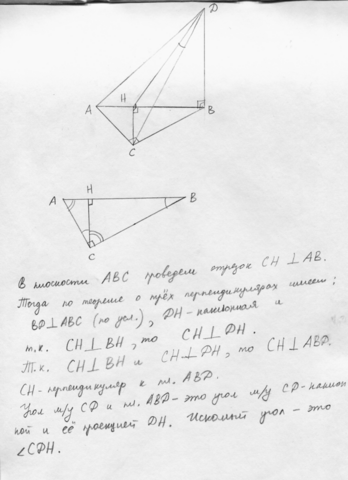 D
A H B
C
A H B
C
В плоскости ABC проведем отрезок CH ⊥ AB.
Тогда по теореме о трёх перпендикулярах имеем:
BD⊥ABC (по усл.), DH-наклонная и
т.к. CH⊥BH, то CH⊥DH.
Т.к. CH⊥BH и CH⊥DH, то CH⊥ABD.
CH-перпендикуляр к пл. ABD.
Угол м/у CD и пл. ABD-это угол м/у CD-наклон
ной и её проекцией DH. Искомый угол - это
∠CDH.